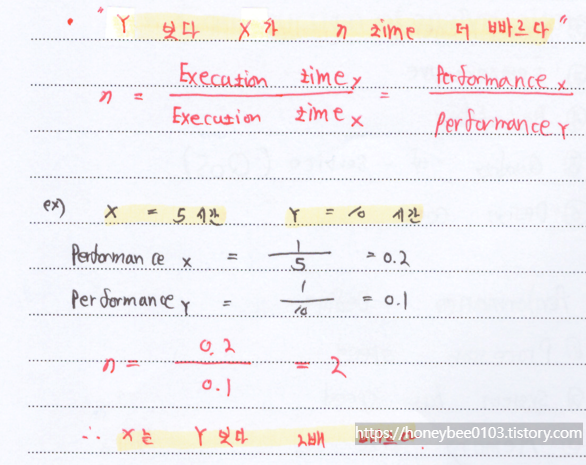 • " Y 보다 X가 n time 더 빠르다 "
n = Execution time Y / Execution time X = Performance X / Performance Y
ex) X = 5 시간 Y = 10 시간
Performance X = 1/5 = 0.2
Performance Y = 1/10 = 0.1
n = 0.2 / 0.1 = 2
∴ X는 Y 보다 2배
https://honeybee0103.tistory.com